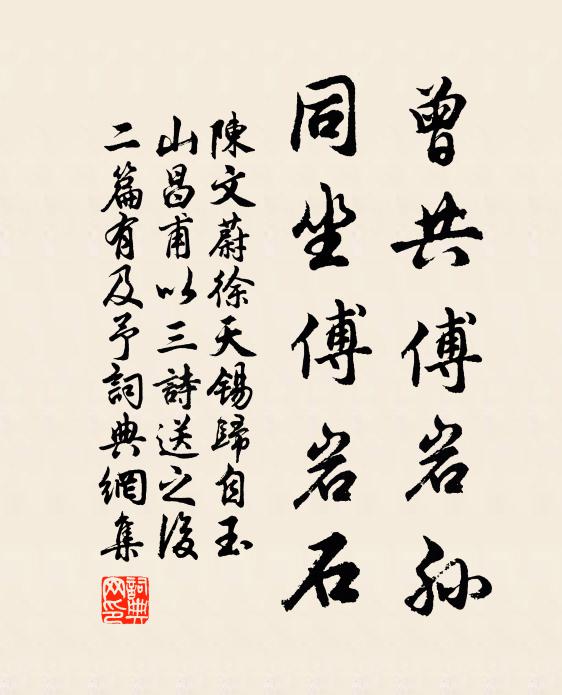 曾共傅岩孙
同坐傅岩石
陳文蔚徐天錫歸自玉
山昌甫以三詩送之後
二篇有及予詞典網集
詞典
网印